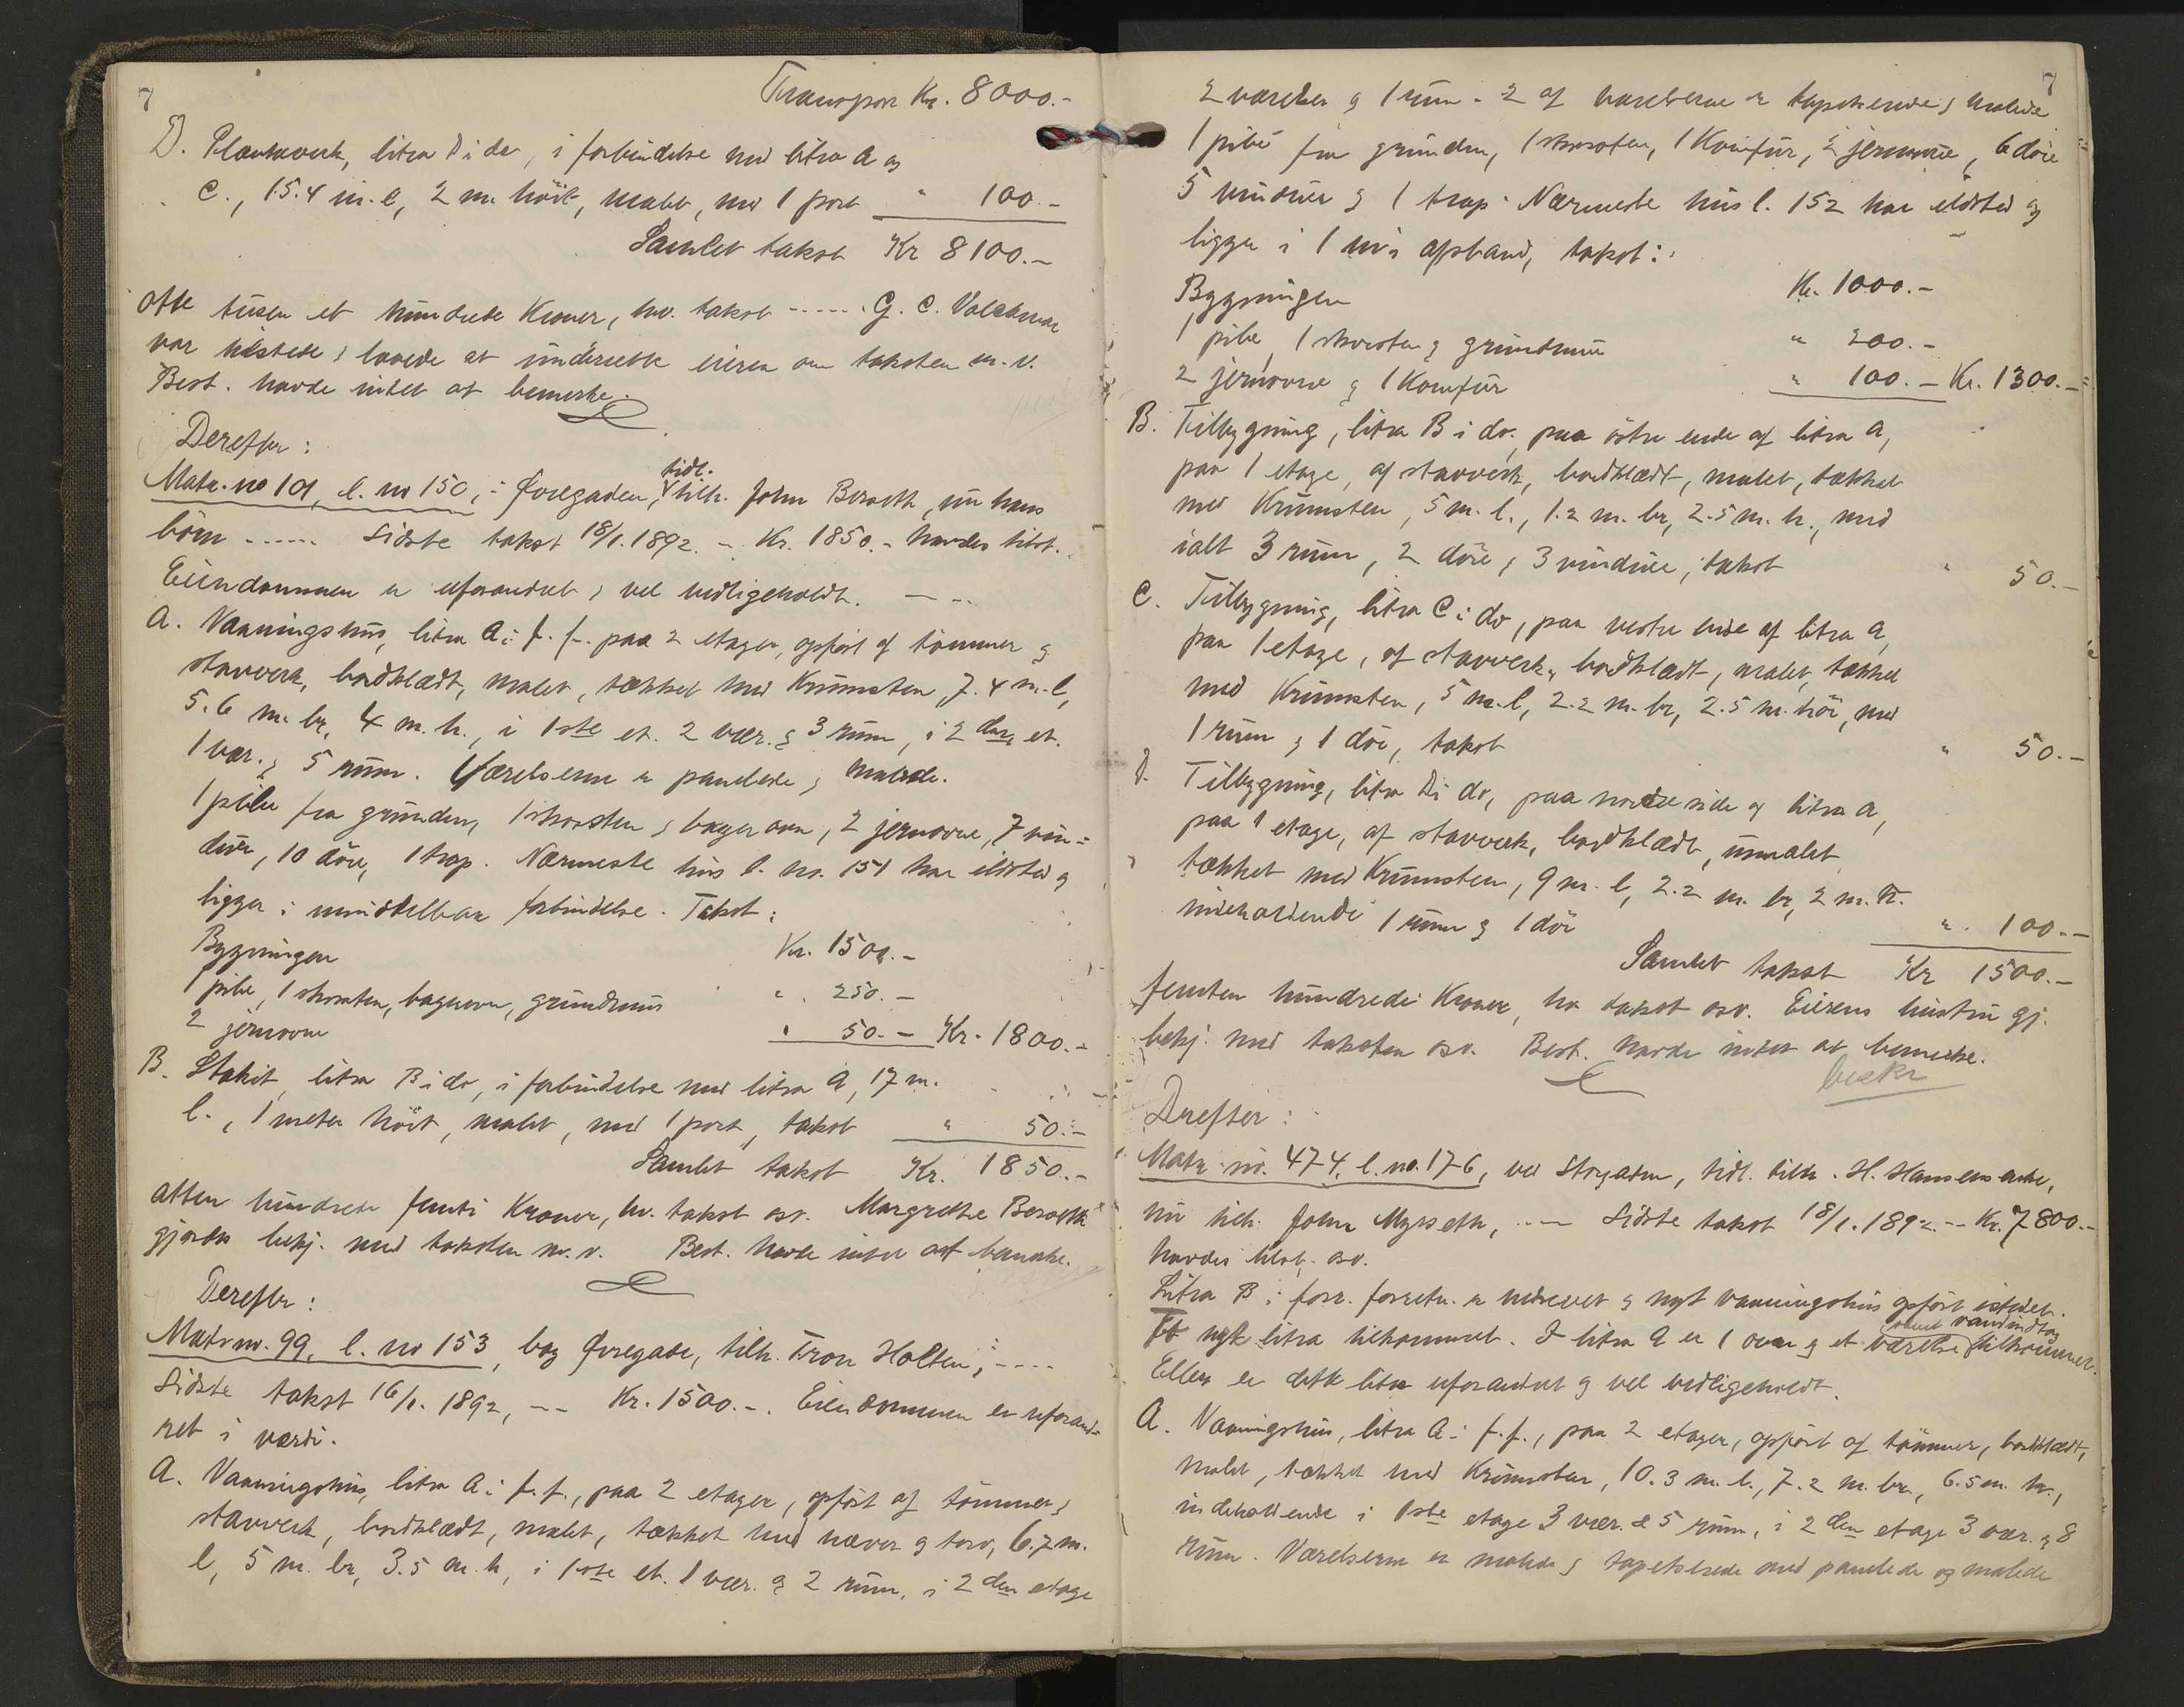 7
Transport Kr. 8000.-
D. Plankeverk, litra D i do, i forbindelse med litra A og
C., 15.4 m. l, 2 m. höit, malet, med 1 port " 100.-
Samlet takst Kr 8100.-
otte tusen et hundrede Kroner, hv. takst ----- G. C. Valckmar
var tilstede & lovede at underrette eieren om taksten m. v.
Best. havde intet at bemerke.
Derefter:
Matr. no 101, l. no 150, i Övregaden, tidl. tilh. John Berseth, nu hans
börn ------ Sidste takst 18/1. 1892. - Kr. 1850.- havdes tilst.
Eiendommen er uforandret & vel vedligeholdt. - --
A. Vaaningshus, litra A i f. f. paa 2 etager, opfört af tömmer &
stavverk, bordklædt, malet, tækket med Krumsten, 7.4 m. l,
5.6 m. br, 4 m. h., i 1ste et. 2 vær. & 3 rum, i 2den et.
1 vær. & 5 rum. Værelserne er panelede & malede.
1 pibe fra grunden, 1 skorsten & bagerovn, 2 jernovne, 7 vin=
duer, 10 döre, 1 trap. Nærmeste hus l. no. 151 har ildsted og
ligger i umiddelbar forbindelse. Takst:
Bygningen Kr. 1500.-
1 pibe, 1 skorsten, bagerovn, grundmur " 250.-
2 jernovne " 50.- Kr. 1800.-
B. Stakit, litra B i do, i forbindelse med litra A, 17 m.
l., 1 meter höit, malet, med 1 port, takst " 50.-
Samlet takst Kr. 1850.-
atten hundrede femti Kroner, hv. takst osv. Margrethe Berseth
gjordes bekj. med taksten m. v. Best. havde intet at bemerke.
Derefter:
Matr no. 99, l. no 153, bag Övregade, tilh. Tron Holten; ----
Sidste takst 16/1. 1892, -- Kr. 1500.-. Eiendommen er uforand-
ret i værdi.
A. Vaaningshus, litra A i f. f., paa 2 etager, opfört af tömmer &
stavverk, bordklædt, malet, tækket med næver & torv, 6.7 m.
l, 5 m. br, 3.5 m. h, i 1ste et. 1 vær. & 2 rum, i 2den etage
7
2 værelser & 1 rum. 2 af værelserne er tapetserede & malede
1 pibe fra grunden, 1 skorsten, 1 Komfur, 2 jernovne, 6 döre
5 vinduer & 1 trap. Nærmeste hus l. 152 har ildsted og
ligger i 1 m's afstand, takst:
Bygningen Kr. 1000.-
1 pibe, 1 skorsten & grundmur " 200.-
2 jernovne & 1 Komfur " 100.- Kr. 1300.-
B. Tilbygning, litra B i do. paa östre ende af litra A,
paa 1 etage, af stavverk, bordklædt, malet, tækket
med Krumsten, 5 m. l., 1.2 m. br, 2.5 m. h., med
ialt 3 rum, 2 döre, 3 vinduer, takst " 50.-
C. Tilbygning, litra C i do, paa vestre ende af litra A,
paa 1 etage, af stavverk, bordklædt, malet, tækket
med Krumsten, 5 m. l, 2.2 m. br, 2.5 m. höi, med
1 rum & 1 dör, takst " 50.-
D. Tilbygning, litra D i do, paa nordre side af litra A,
paa 1 etage, af stavverk, bordklædt, umalet,
tækket med Krumsten, 9 m. l, 2.2 m. br, 2 m. h.
indeholdende 1 rum & 1 dör " 100.-
Samlet takst Kr 1500.-
femten hundrede Kroner, hv takst osv. Eierens hustru gj.
bekj. med taksten osv. Best. havde intet at bemerke.
beskr
Derefter:
Matr no. 474, l. no. 176, ved Storgaden, tidl. tilh. H. Hansens enke,
nu tilh. John Myrseth, --- Sidste takst 18/1. 1892. -- Kr. 7800.-
havdes tilst. osv.
Litra B i forr. forretn. er nedrevet & nyt vaaningshus opfört istedet.
Et nyt litra tilkommet. I litra A er 1 ovn & et værelse samt vandindtag tilkommet.
Ellers er dette litra uforandret & vel vedligeholdt.
A. Vaaningshus, litra A i f. f., paa 2 etager, opfört af tömmer, bordklædt,
malet, tækket med Krumsten, 10.3 m. l., 7.2 m. br., 6.5 m. h.,
indeholdende i 1ste etage 3 vær. & 5 rum, i 2den etage 3 vær. & 8
rum. Værelserne er malede & tapetserede med panelede og malede